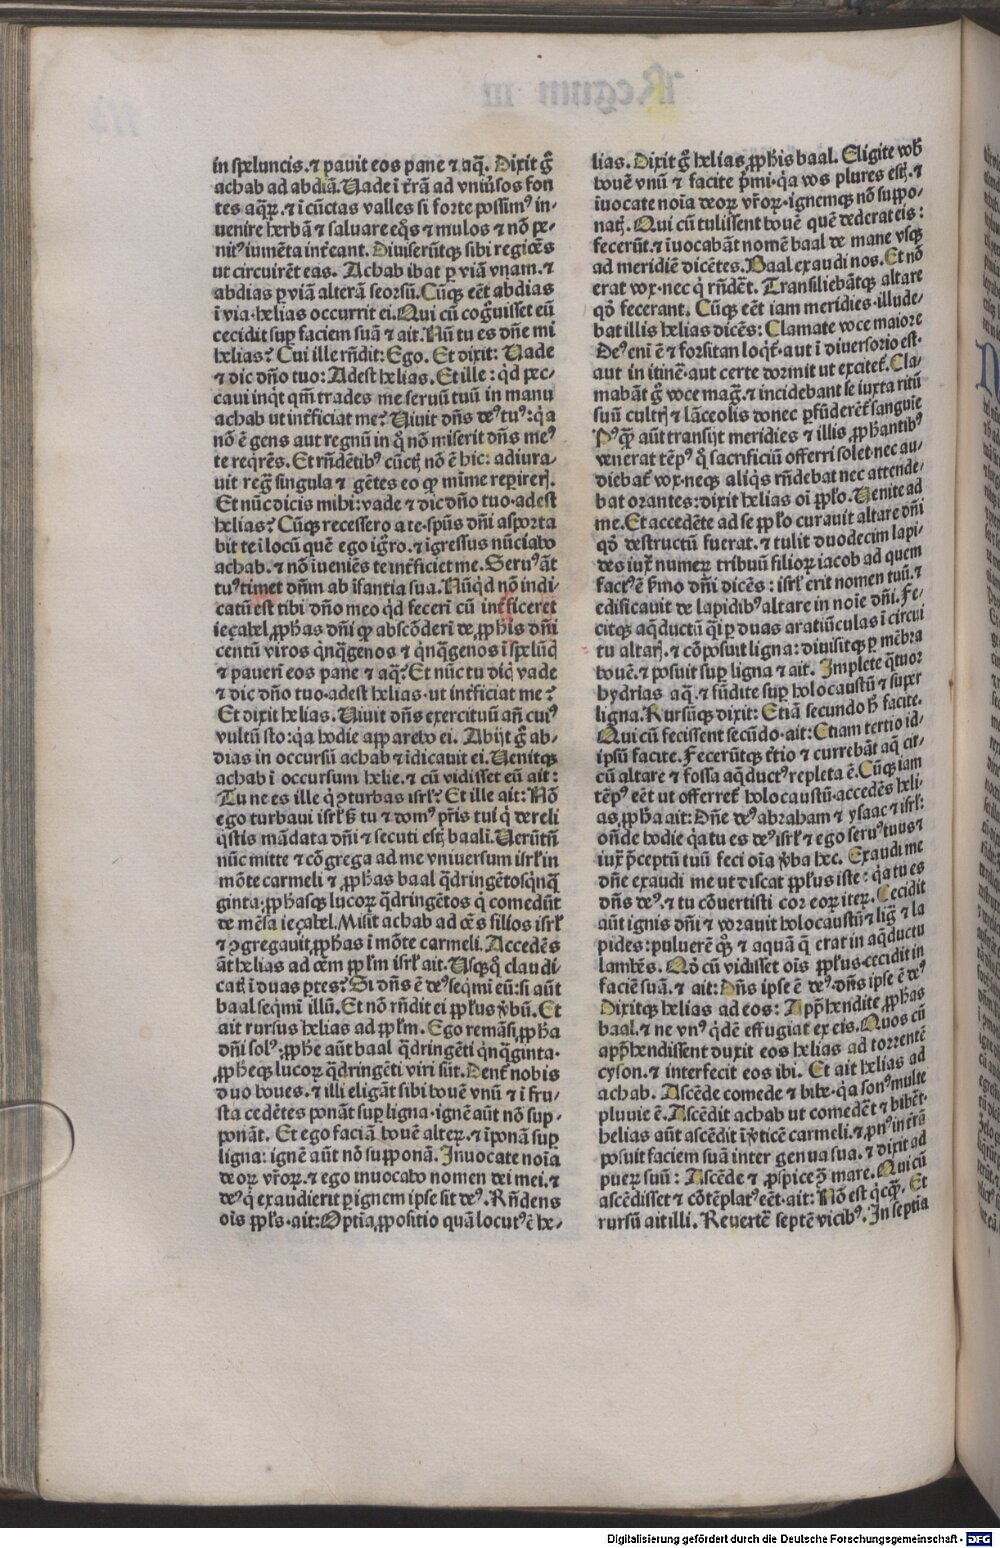 in speluncis. ⁊ pavit eos pane ⁊ aq̄. Dixit g̃
achab ad abdiā. Uade ī t̃rā ad vniũsos fon
tes aqꝝ. ⁊ ī cūctas valles si forte possimꝰ in-
uenire herbā ⁊ saluare eq̃s ⁊ mulos ⁊ nō pe-
nitꝰ iumēta int̃eant. Diuiserūtqꝫ sibi regiões
ut circuirēt eas. Achab ibat ꝑ viā vnam. ⁊
abdias ꝑ viā alterā seorsū. Cūqꝫ eẽt abdias
ī via· helias occurrit ei. Qui cū cog̃uisset eū
cecidit suꝑ faciem suā ⁊ ait. Nū tu es dñe mi
helias? Cui ille rñdit: Ego. Et dixit: Uade
⁊ dic dño tuo: Adest helias. Et ille: qd pec-
caui inqt qm̄ trades me seruū tuū in manu
achab ut int̃ficiat me? Uiuit dñs deꝰ tuꝰ: qa
nō ē gens aut regnū in q̊ nō miserit dñs meꝰ
te reqrēs. Et rñdētibꝰ cūctꝭ nō ē hic: adiura-
uit reg̃ singula ⁊ gētes eo ꝙ mīme reꝑireꝭ.
Et nūc dicis mihi: vade ⁊ dic dño tuo· adest
helias? Cūqꝫ recessero a te· spūs dñi asporta
bit te ī locū quē ego ig̃ro. ⁊ īgressus nūciabo
achab. ⁊ nō īueniēs te int̃ficiet me. Seruꝰ āt
tuꝰ timet dñm ab īfantia sua. Nūqd nō indi-
catū est tibi dño meo qd fecerī cū int̃ficeret
ieçabel ꝓphas dñi ꝙ abscōderī de ꝓphis dñi
centū viros qnqgenos ⁊ qnqgenos ī spelūc̃
⁊ pauerī eos pane ⁊ aq̄? Et nūc tu dic̃ vade
⁊ dic dño tuo· adest helias· ut int̃ficiat me?
Et dixit helias. Uiuit dñs exercituū añ cuiꝰ
vultū sto: qa hodie apparebo ei. Abijt g̃ ab-
dias in occursū achab ⁊ īdicauit ei. Uenitqꝫ
achab ī occursum helie. ⁊ cū vidisset eū ait:
Tu ne es ille q̇ ꝯturbas isrł? Et ille ait: Nō
ego turbaui isrł sꝫ tu ⁊ domꝰ pr̃is tui q̇ dereli
q̇stis mādata dñi ⁊ secuti estꝭ baalī. Uerūtñ
nūc mitte ⁊ cōgrega ad me vniuersum isrł in
mōte carmeli ⁊ ꝓphas baal q̃dringētosq̇nq̃
ginta· ꝓphasqꝫ lucoꝝ q̃dringētos q̇ comedūt
de mēsa ieçabel. Misit achab ad oẽs filios isrł
⁊ ꝯgregauit ꝓphas ī mōte carmeli. Accedēs
āt helias ad oẽm ppłm isrł ait. Usqꝫq̊ claudi-
catꝭ ī duas ꝑtes? Si dñs ē deꝰ seqmī eū: si aūt
baal seqmī illū. Et nō rñdit ei ppłus ṽbū. Et
ait rursus helias ad ppłm. Ego remāsi ꝓpha
dñi solꝰ: ꝓphe aūt baal q̃dringēti q̇nq̃ginta·
ꝓphecqꝫ lucoꝝ q̃dringēti viri sūt. Dent̃ nobis
duo boues. ⁊ illi eligāt sibi bouē vnū ⁊ ī fru-
sta cedētes ponāt suꝑ ligna· ignē aūt nō sup-
ponāt. Et ego faciā bouē alteꝝ. ⁊ īponā suꝑ
ligna: ignē aūt nō supponā. Inuocate noīa
deoꝝ vr̃oꝝ. ⁊ ego inuocabo nomen dei mei. ⁊
deꝰ q̇ exaudierit ꝑ ignem ipse sit deꝰ. Rñdens
oīs ppłs· ait: Optia ꝓpositio quā locutꝰ ē he-
lias. Dixit g̃ helias ꝓphis baal. Eligite vob̃
bouē vnū ⁊ facite p̃mi· qa vos plures estꝭ. ⁊
iuocate noīa deoꝝ vr̃oꝝ· ignemqꝫ nō suppo-
natꝭ. Qui cū tulissent bouē quē dederat eis:
fecerūt. ⁊ īuocabāt nomē baal de mane vsqꝫ
ad meridiē dicētes. Baal exaudi nos. Et nō
erat vox· nec q̇ rñdēt. Transiliebātqꝫ altare
qd̊ fecerant. Cūqꝫ eẽt iam meridies· illude-
bat illis helias dicēs: Clamate voce maiore
Deꝰ eni ē ⁊ forsitan loqt̃· aut ī diuersorio est·
aut in itinē· aut certe dormit ut excitet̃. Cla-
mabāt g̃ voce mag̃. ⁊ incidebant se iuxta ritū
suū cultrꝭ ⁊ lāceolis donec ꝑfūderēt̃ sanguīe
Pꝰꝙ̃ aūt transijt meridies ⁊ illis ꝓphantibꝰ
venerat tēpꝰ q̊ sacrificiū offerri solet· nec au-
diebat̃ vox· neqꝫ aliq̇s rñdebat nec attende-
bat orantes: dixit helias oī ppło. Uenite ad
me. Et accedēte ad se ppło curauit altare dñi
qd̊ destructū fuerat. ⁊ tulit duodecim lapi-
des iux̃ numeꝝ tribuū filioꝝ iacob ad quem
factꝰ ē s̃mo dñi dicēs: isrł erit nomen tuū. ⁊
edificauit de lapidibꝰ altare in noīe dñi. Fe-
citqꝫ aq̃ductū q̃i ꝑ duas aratiūculas ī circui
tu altarꝭ. ⁊ cōposuit ligna: diuisitqꝫ ꝑ mēbra
bouē. ⁊ posuit suꝑ ligna ⁊ ait. Implete q̃tuor
hydrias aq̃. ⁊ fūdite suꝑ holocaustū ⁊ super
ligna. Rursūqꝫ dixit: Etiā secundo h̃ facite.
Qui cū fecissent secūdo· ait: Etiam tertio id-
ipsū facite. Fecerūtqꝫ t̃tio ⁊ currebāt aq̃ cir-
cū altare ⁊ fossa aq̃ductꝰ repleta ē. Cūqꝫ iam
tēpꝰ eẽt ut offerret̃ holocaustū· accedēs heli-
as ꝓpha ait: Dñe deꝰ abraham ⁊ ysaac ⁊ isrł:
oñde hodie qa tu es deꝰ isrł ⁊ ego seruꝰ tuus ⁊
iux̃ p̃ceptū tuū feci oīa ṽba hec. Exaudi me
dñe exaudi me ut discat ppłus iste: qa tu es
dñs deꝰ. ⁊ tu cōuertisti cor eoꝝ iteꝝ. Cecidit
aūt ignis dñi ⁊ vorauit holocaustū ⁊ lig̃ ⁊ la
pides: puluerē qꝫ ⁊ aquā q̄ erat in aq̃ductu
lambēs. Qd̊ cū vidisset oīs ppłus· cecidit in
faciē suā. ⁊ ait: Dñs ipse ē deꝰ. dñs ipse ē deꝰ
Dixitqꝫ helias ad eos: Apprehendite ꝓphas
baal. ⁊ ne vnꝰ q̇dē effugiat ex eis. Quos cū
app̃hendissent duxit eos helias ad torrentē
cyson. ⁊ interfecit eos ibi. Et ait helias ad
achab. Ascēde comede ⁊ bibe· qa sonꝰ multe
pluuie ē. Ascēdit achab ut comedēt ⁊ bibēt·
helias aūt ascēdit ī ṽticē carmeli. ⁊ ꝓnꝰ in t̃rā
posuit faciem suā inter genua sua. ⁊ dixit ad
pueꝝ suū: Ascēde ⁊ ꝓspice ꝯ̃ mare. Qui cū
ascēdisset ⁊ cōtēplatꝰ eẽt· ait: Nō est q̇cq̃. Et
rursū ait illi. Reuertē septē vicibꝰ. In septīa
Digitalisierung gefördert durch die Deutsche Forschungsgemeinschaft - DFG